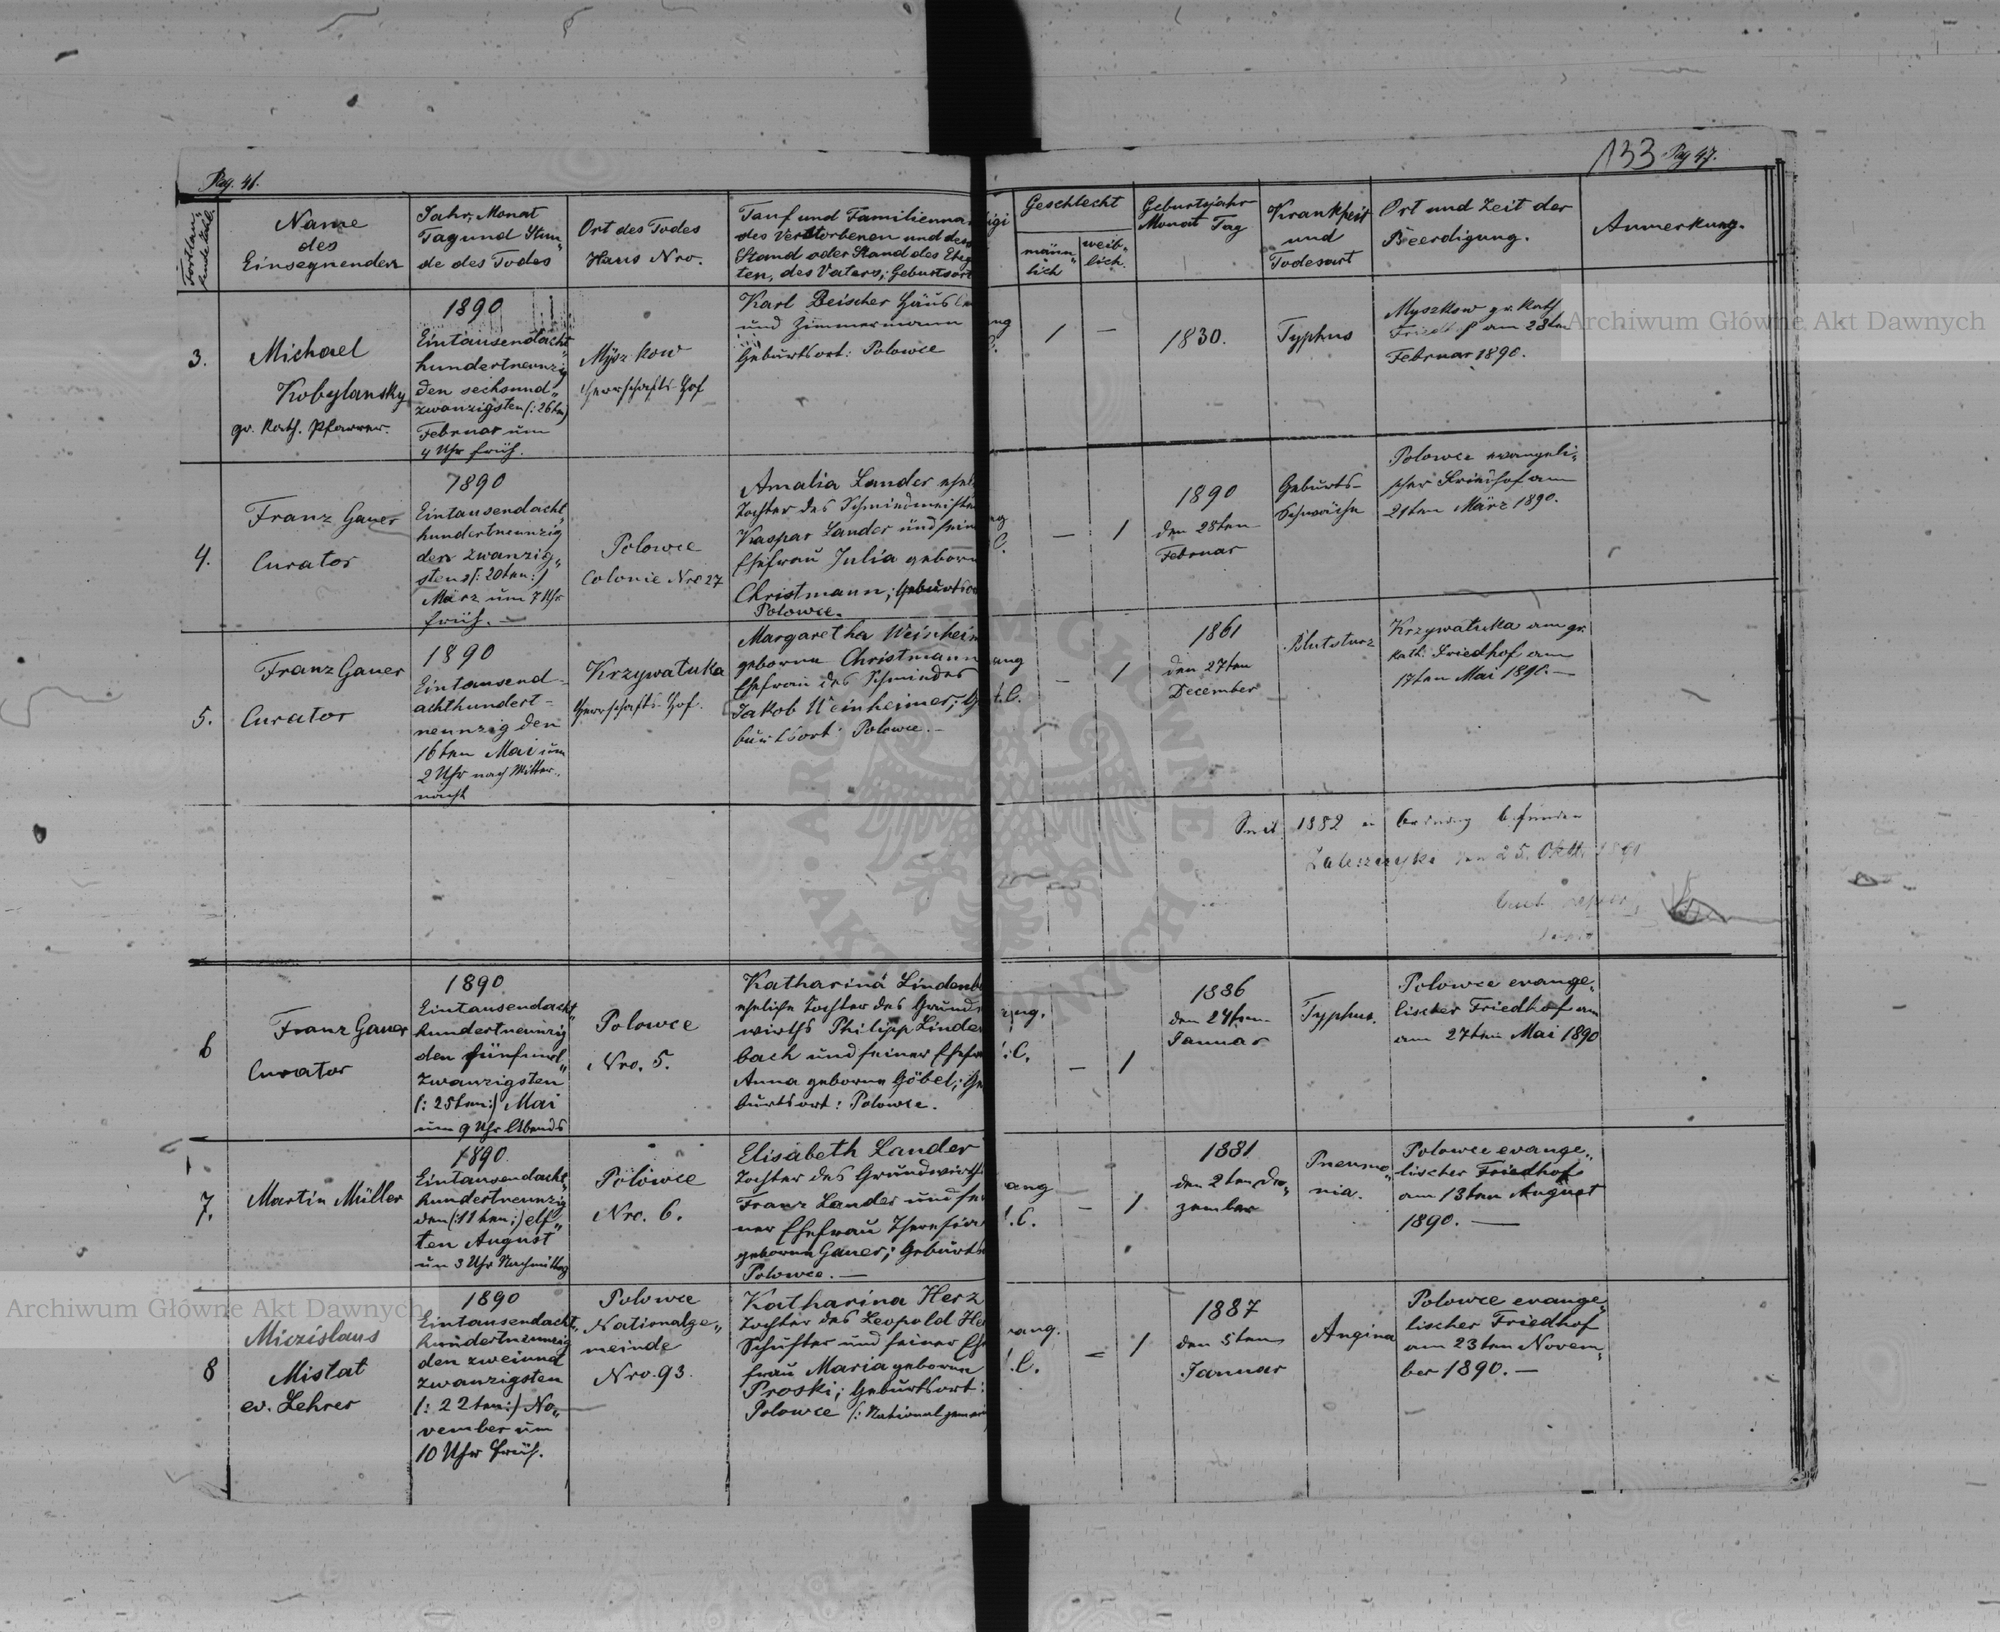 Pag. 46.
133 Pag 47.
Fortlau„
fende Zahl
Name
des
Einsegnenden
Jahr, Monat
Tag und Stun„
de des Todes
Ort des Todes
Haus Nro.
Tauf und Familienna
des Verstorbenen und des
Stand oder Stand des Eheg
ten, des Vaters; Geburtsort
Geschlecht
männ„
lich
weib„
lich.
Geburtsjahr
Monat Tag
Krankheit
und
Todesart
Ort und Zeit der
Beerdigung.
Anmerkung.
3.
Michael
Kobylansky
gr. Kath. Pfarrer.
1890
Eintausendacht„
hundertneunzig
den sechsund„
zwanzigsten (: 26ten)
Februar um
4 Uhr früh.
Myszkow
Herrschafts Hof
Karl Beischer Häusle
und Zimmermann
Geburtsort: Polowce
ang
C.
1 —
1830.
Typhus
Myszkow gr. Kath
Friedhof am 28ten
Februar 1890.
4.
Franz Gauer
Curator
1890
Eintausendacht„
hundertneunzig
den zwanzig„
sten (: 20ten :)
März um 7 Uhr
früh. —
Polowce
Colonie Nro 27
Amalia Lander ehel
Tochter des Schmiedmeister
Kaspar Lander und sein
Ehefrau Julia geborn
Christmann; Geburtsor
Polowce.
C.
— 1
1890
den 28ten
Februar
Geburts-
Schwäche
Polowce evangeli„
scher Friedhof am
21ten März 1890.
5.
Franz Gauer
Curator
1890
Eintausend-
achthundert-
neunzig den
16ten Mai um
2 Uhr nach Mitter„
nacht
Krzywatuka
Herrschafts Hof.
Margaretha Weinheim
geborne Christmann
Ehefrau des Schmiedes
Jakob Weinheimer; Ge
burtsort: Polowce. —
ang
C.
— 1
1861
den 27ten
December
Blutsturz
Krzywatuka am gr.
kath. Friedhof am
17ten Mai 1890. —
Seit 1882 in Ordnung befunden
Zaleszczyki den 25. Okt. 1891
6
Franz Gauer
Curator
1890
Eintausendacht„
hundertneunzig
den fünfund„
zwanzigsten
(: 25ten :) Mai
um 9 Uhr Abends
Polowce
Nro. 5.
Katharina Lindenb
eheliche Tochter des Grund
wirths Philipp Linden
bach und seiner Ehefr
Anna geborne Göbel; Ge
burtsort: Polowce.
ang.
C.
— 1
1886
den 24ten
Januar
Typhus.
Polowce evange„
lischer Friedhof am
am 27ten Mai 1890
7.
Martin Müller
1890.
Eintausendacht„
hundertneunzig
den (: 11ten :) elf„
ten August
um 3 Uhr Nachmittag
Polowce
Nro. 6.
Elisabeth Lander
Tochter des Grundwirths
Franz Lander und sei
ner Ehefrau Theresia
geborne Gauer; Geburts
Polowce. —
ang
C.
— 1
1881
den 2ten De„
zember
Pneumo„
nia.
Polowce evange„
lischer Friedhof
am 13ten August
1890. —
8
Miezislaus
Mistat
ev. Lehrer
1890
Eintausendacht„
hundertneunzig
den zweiund
zwanzigsten
(: 22ten :) No„
vember um
10 Uhr früh.
Polowce
Nationalge„
meinde
Nro. 93.
Katharina Herz
Tochter des Leopold He
Schuster und seiner Ehe
frau Maria geborne
Proski; Geburtsort:
Polowce (: Nationalgemein
ang.
C.
— 1
1887
den 5ten
Januar
Angina
Polowce evange„
lischer Friedhof
am 23ten Novem„
ber 1890. —
Archiwum Główne Akt Dawnych
Archiwum Główne Akt Dawnych